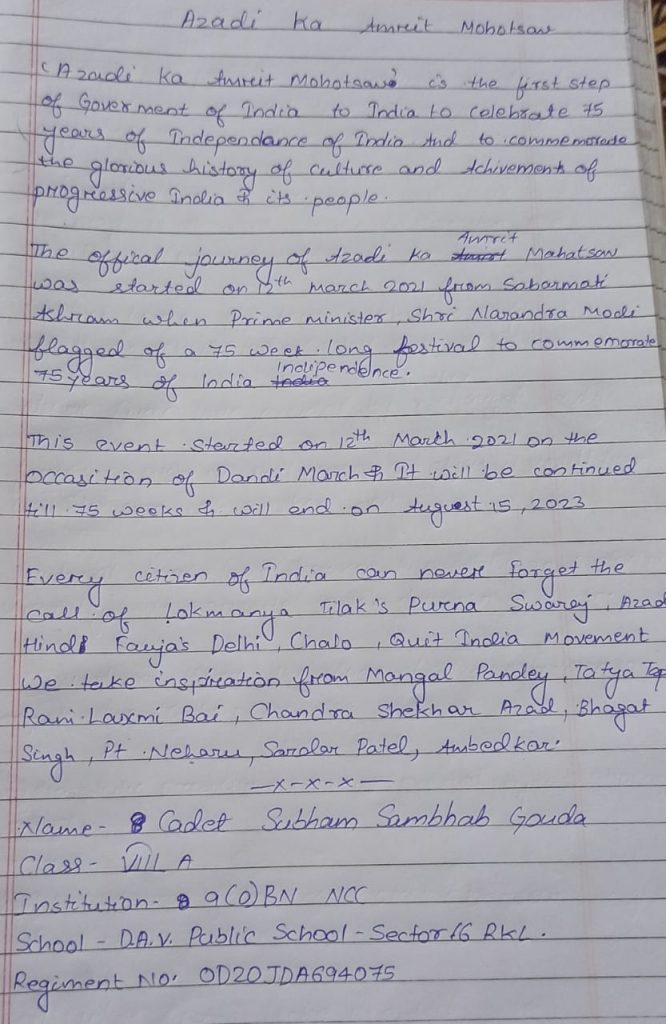 Azadi Ka Amreit Mohotsaw
'Azadi Ka Amreit Mohotsaw' is the first step
of Goverment of India to India to celebrate 75
years of Independance of India And to commemorade
the glorious history of culture and Achivements of
progressive India & its people.
The offical journey of Azadi Ka Amrit Mahatsaw
was started on 12th March 2021 from Sabarmati
Ashram when Prime minister, Shri Narandra Modi
flagged of a 75 week long festival to commemorate
75 years of India Indipendence.
This event started on 12th March 2021 on the
occasition of Dandi March & It will be continued
till 75 weeks & will end on August 15, 2023
Every citizen of India can never forget the
call of Lokmanya Tilak's Purna Swaraj, Azad
Hind Fauja's Delhi, Chalo, Quit India Movement
We take inspiration from Mangal Pandey, Tatya Top
Rani Laxmi Bai, Chandra Shekhar Azad, Bhagat
Singh, Pt. Neharu, Sardar Patel, Ambedkar.
—x-x-x—
Name- Cadet Subham Sambhab Gouda
Class- VIII A
Institution- 9(O)BN NCC
School - D.A.V. Public School - Sector 16 RKL.
Regiment No. OD20JDA694075